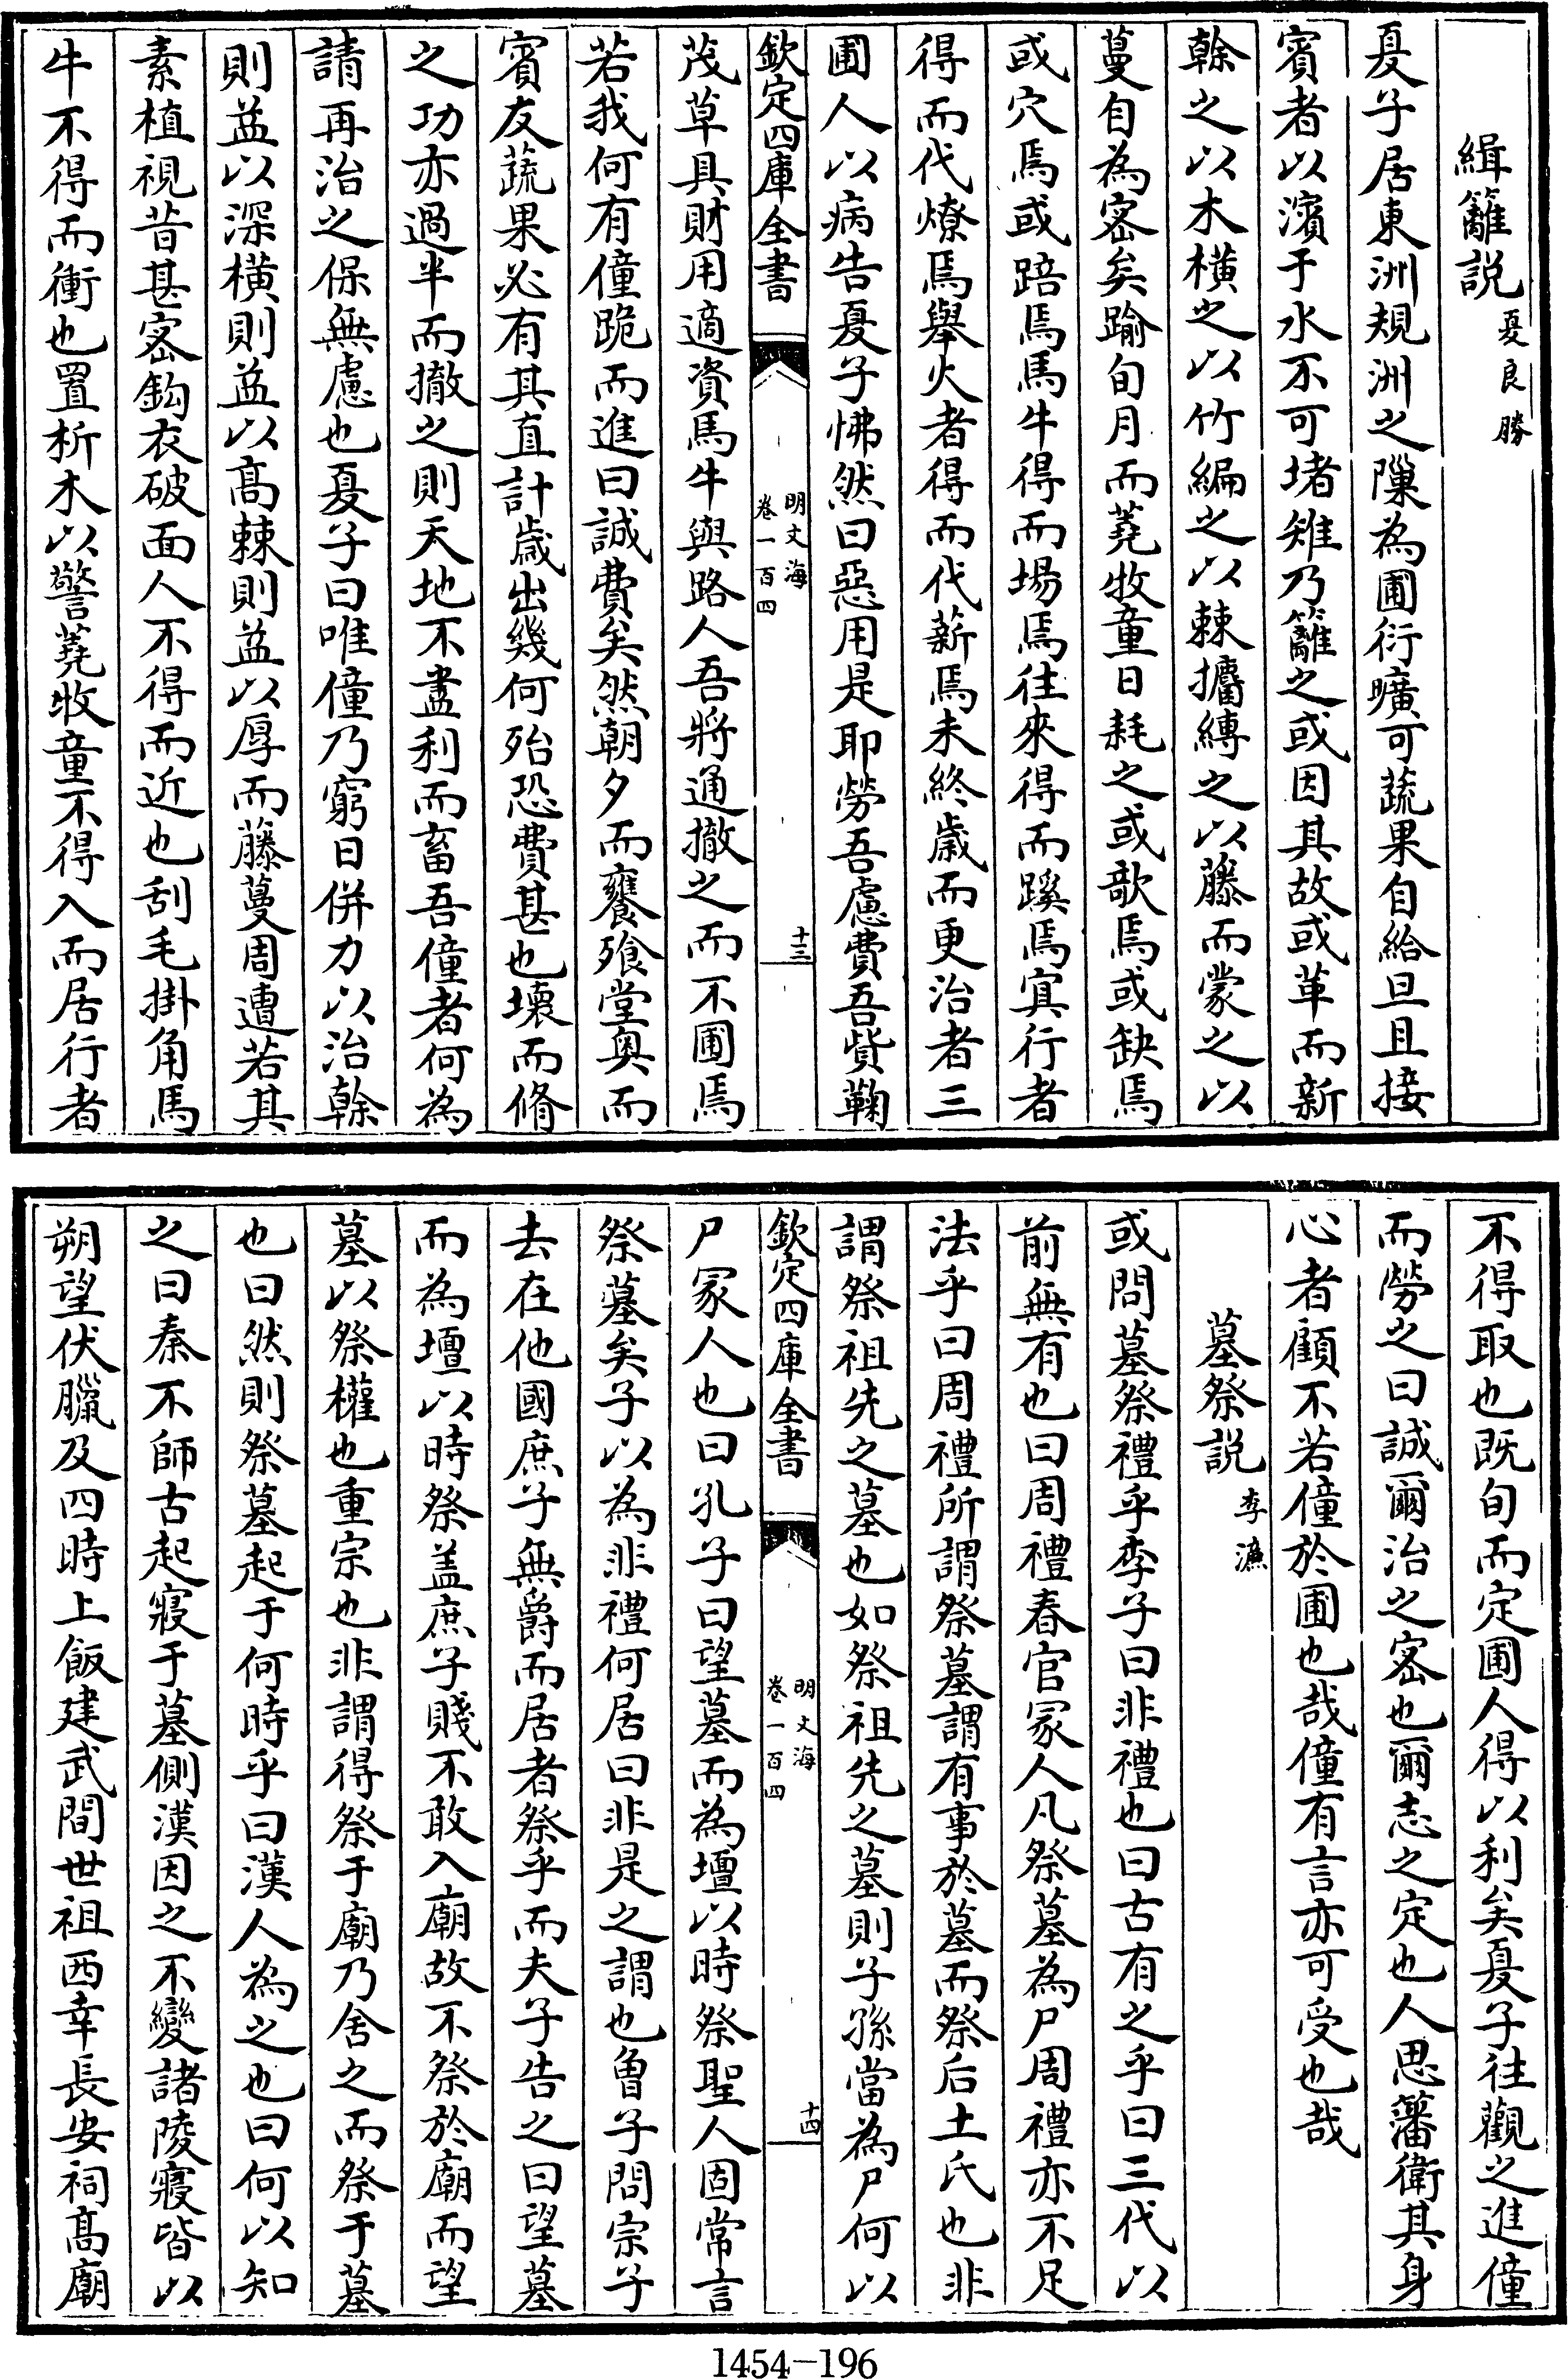 緝籬説夏良勝
夏子居東洲規洲之隟為圃衍曠可蔬果自給旦且接
賓者以濱于水不可堵雉乃籬之或因其故或革而新
榦之以木橫之以竹編之以棘攟縳之以藤而蒙之以
蔓自為宻矣踰旬月而蕘牧童日耗之或歌焉或缺焉
或穴焉或踣焉馬牛得而場焉往來得而蹊焉寘行者
得而代燎焉舉火者得而代薪焉未終歲而更治者三
圃人以病告夏子怫然曰惡用是耶勞吾慮費吾貲鞠
欽定四庫全書
明文海
卷一百四
十三
茂草具財用適資馬牛與路人吾將通撤之而不圃焉
若我何有僮跪而進曰誠費矣然朝夕而饔飱堂奥而
賓友蔬果必有其直計歲出幾何殆恐費甚也壞而脩
之功亦過半而撤之則天地不盡利而畜吾僮者何為
請再治之保無慮也夏子曰唯僮乃窮日併力以治榦
則益以深橫則益以髙棘則益以厚而藤蔓周遭若其
素植視昔甚宻鈎衣破面人不得而近也刮毛掛角馬
牛不得而衝也置析木以警蕘牧童不得入而居行者
不得取也既旬而定圃人得以利矣夏子往觀之進僮
而勞之曰誠爾治之宻也爾志之定也人思籓衛其身
心者顧不若僮於圃也哉僮有言亦可受也哉
墓祭説李濂
或問墓祭禮乎李子曰非禮也曰古有之乎曰三代以
前無有也曰周禮春官冡人凡祭墓為尸周禮亦不足
法乎曰周禮所謂祭墓謂有事於墓而祭后土氏也非
謂祭祖先之墓也如祭祖先之墓則子孫當為尸何以
欽定四庫全書
明文海
卷一百四
十四
尸冡人也曰孔子曰望墓而為壇以時祭聖人固常言
祭墓矣子以為非禮何居曰非是之謂也曾子問宗子
去在他國庶子無爵而居者祭乎而夫子告之曰望墓
而為壇以時祭盖庶子賤不敢入廟故不祭於廟而望
墓以祭權也重宗也非謂得祭于廟乃舍之而祭于墓
也曰然則祭墓起于何時乎曰漢人為之也曰何以知
之曰秦不師古起寢于墓側漢因之不變諸陵寢皆以
朔望伏臘及四時上飯建武間世祖西幸長安祠髙廟
1454-196